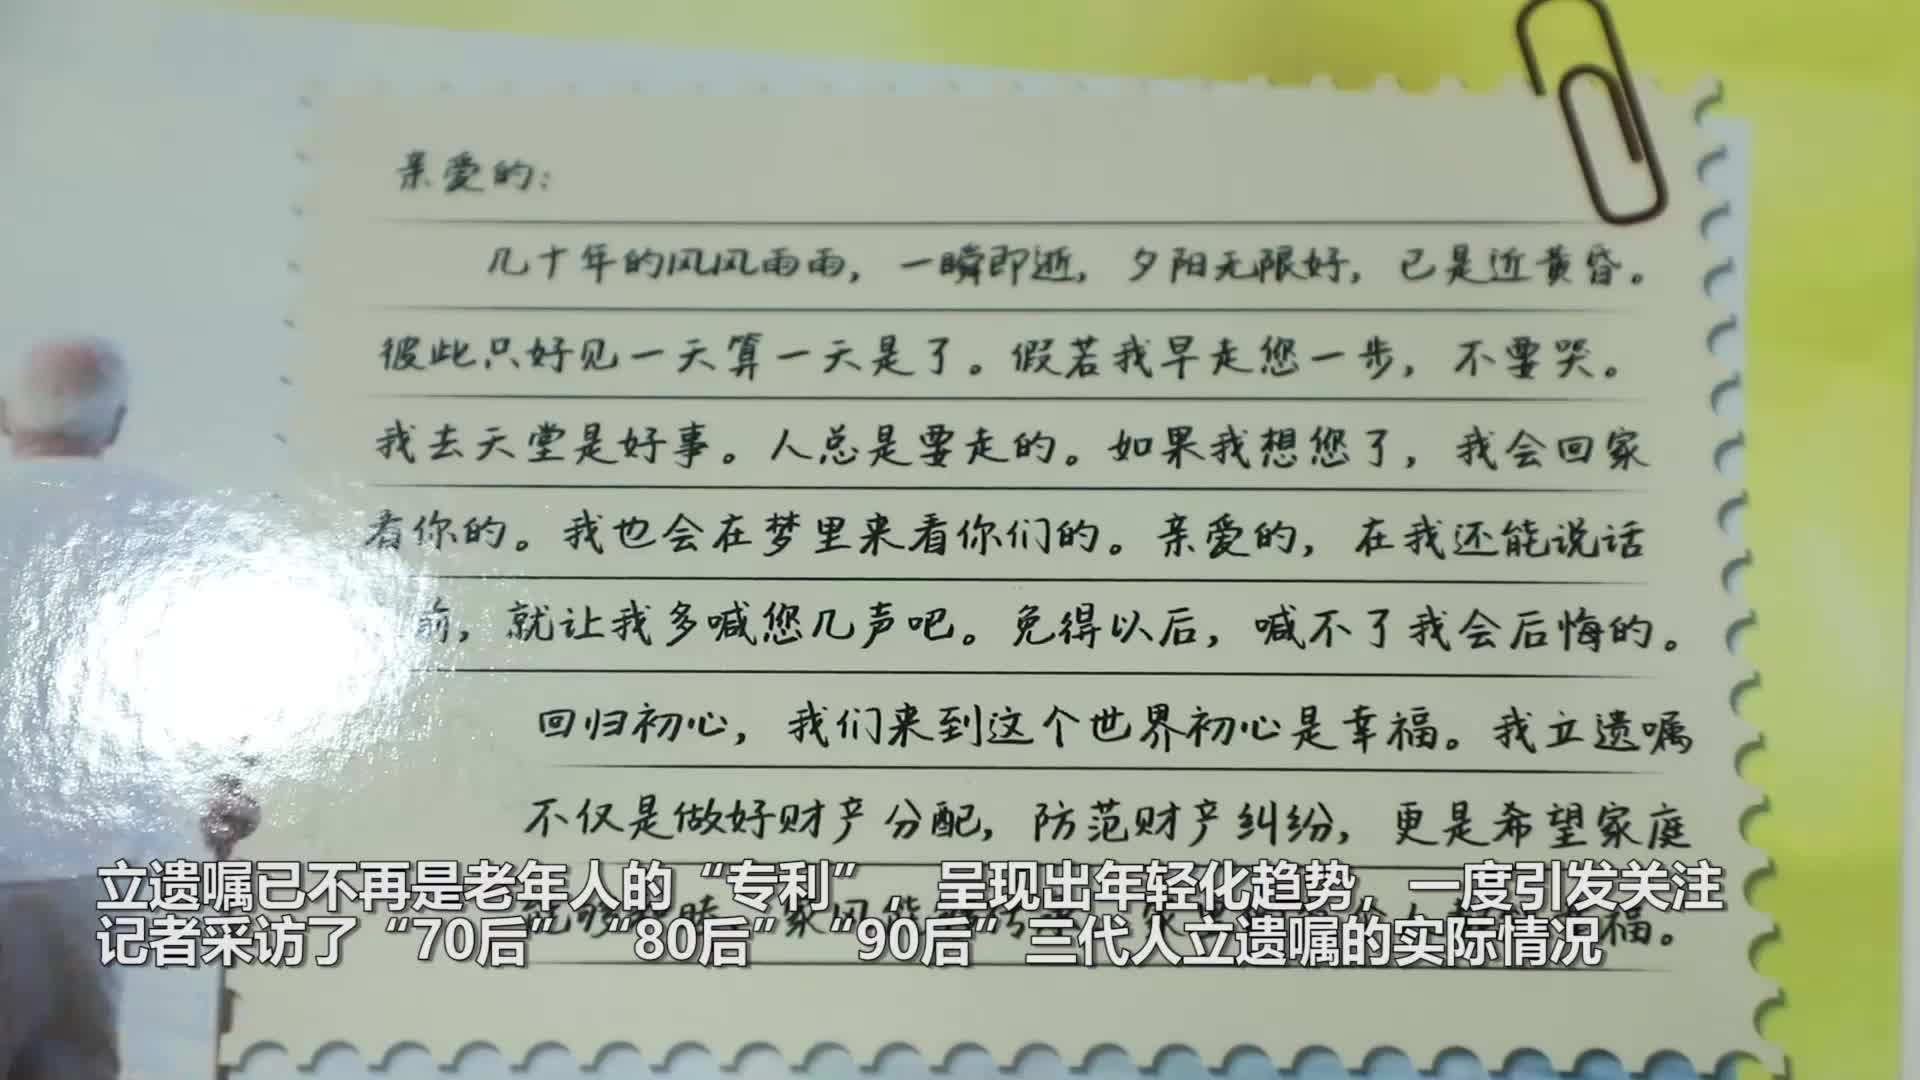 亲爱的：
几十年的风风雨雨，一瞬即逝，夕阳无限好，已是近黄昏。
彼此只好见一天算一天是了。假若我早走您一步，不要哭。
我去天堂是好事。人总是要走的。如果我想您了，我会回家
看你的。我也会在梦里来看你们的。亲爱的，在我还能说话
前，就让我多喊您几声吧。免得以后，喊不了我会后悔的。
回归初心，我们来到这个世界初心是幸福。我立遗嘱
不仅是做好财产分配，防范财产纠纷，更是希望家庭
福。
立遗嘱已不再是老年人的“专利”，呈现出年轻化趋势，一度引发关注
记者采访了“70后”“80后”“90后”三代人立遗嘱的实际情况